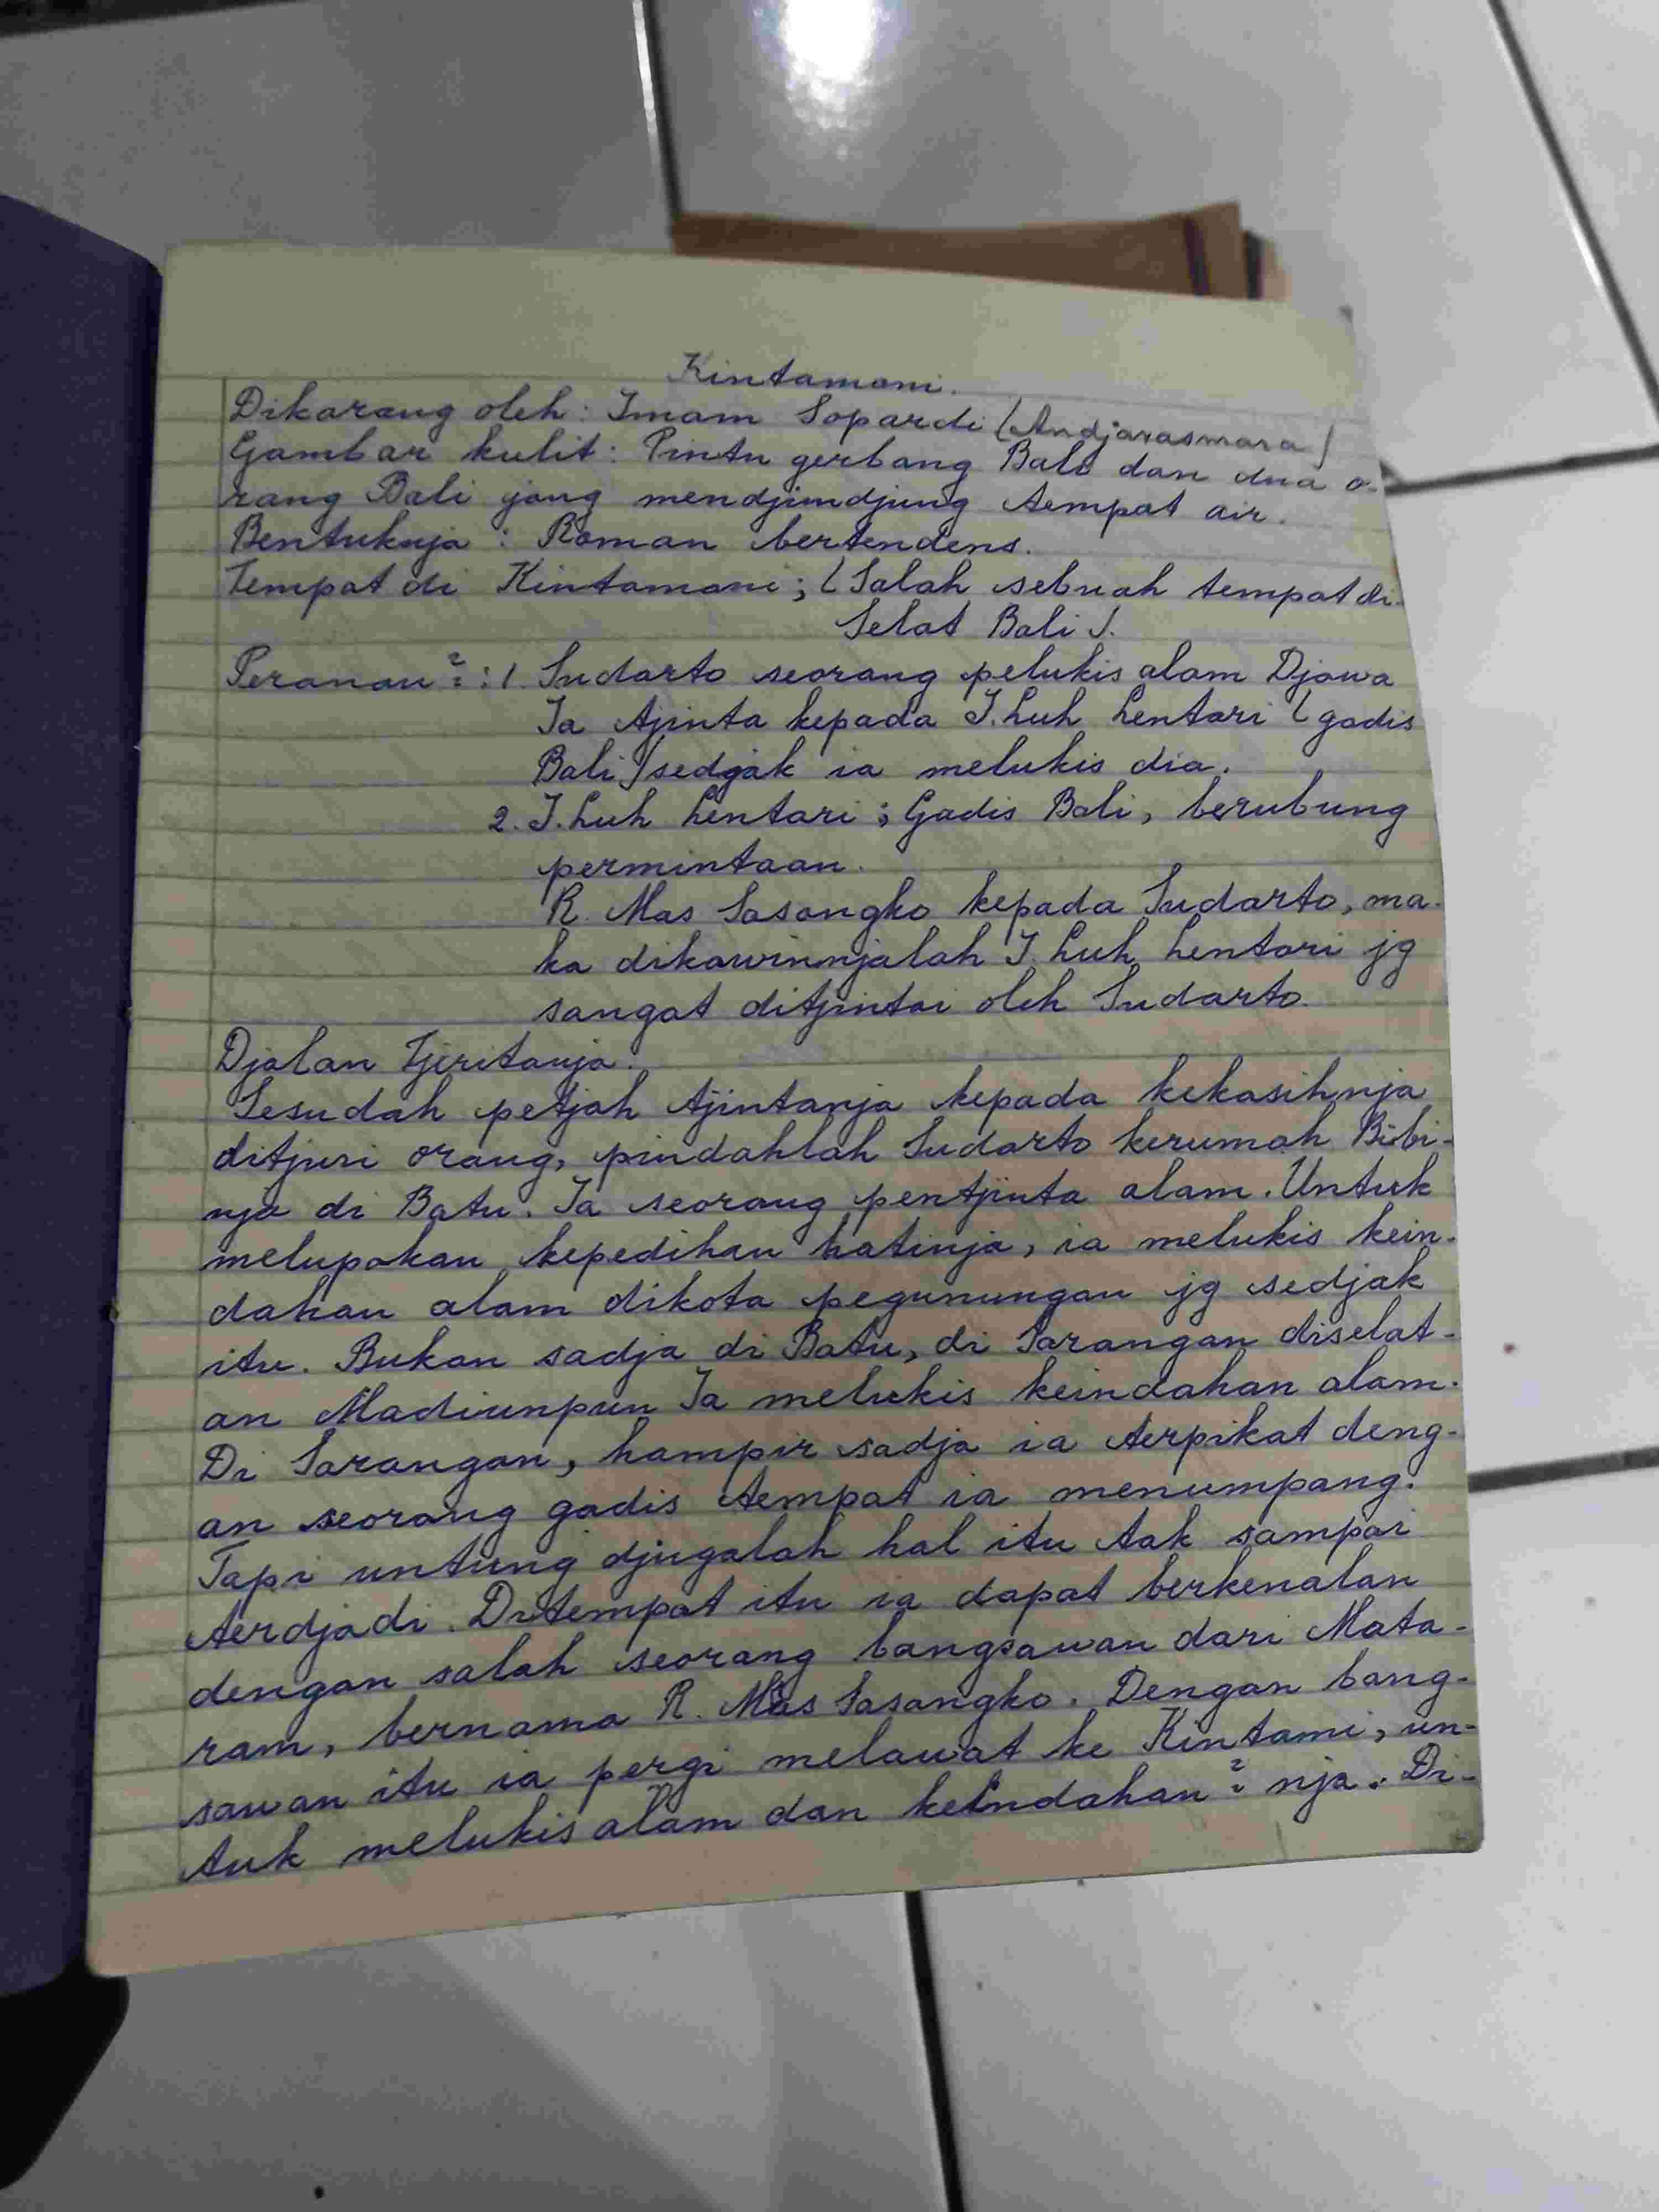 Kintamani.
Dikarang oleh: Imam Sopardi (Andjarasmara)
Gambar kulit: Pintu gerbang Bali dan dua o-
rang Bali jang mendjundjung tempat air.
Bentuknja: Roman bertendens.
Tempat di Kintamani; (Salah sebuah tempat di-
Selat Bali).
Peranan²: 1. Sudarto seorang pelukis alam Djawa
Ia tjinta kepada I. Luh Lentari (gadis
Bali) sedjak ia melukis dia.
2. I. Luh Lentari; Gadis Bali, berubung
permintaan.
R. Mas Sasongko kepada Sudarto, ma-
ka dikawinnjalah I. Luh Lentari jg
sangat ditjintai oleh Sudarto.
Djalan Tjeritanja:
Sesudah petjah tjintanja kepada kekasihnja
ditjuri orang, pindahlah Sudarto kerumah Bibi-
nja di Batu. Ia seorang pentjinta alam. Untuk
melupakan kepedihan hatinja, ia melukis kein-
dahan alam dikota pegunungan jg sedjak
itu. Bukan sadja di Batu, di Sarangan diselat-
an Madiunpun Ia melukis keindahan alam.
Di Sarangan, hampir sadja ia terpikat deng-
an seorang gadis tempat ia menumpang.
Tapi untung djugalah hal itu tak sampai
terdjadi. Ditempat itu ia dapat berkenalan
dengan salah seorang bangsawan dari Mata-
ram, bernama R. Mas Sasongko. Dengan bang-
sawan itu ia pergi melawat ke Kintami, un-
tuk melukis alam dan keindahan² nja. Di-